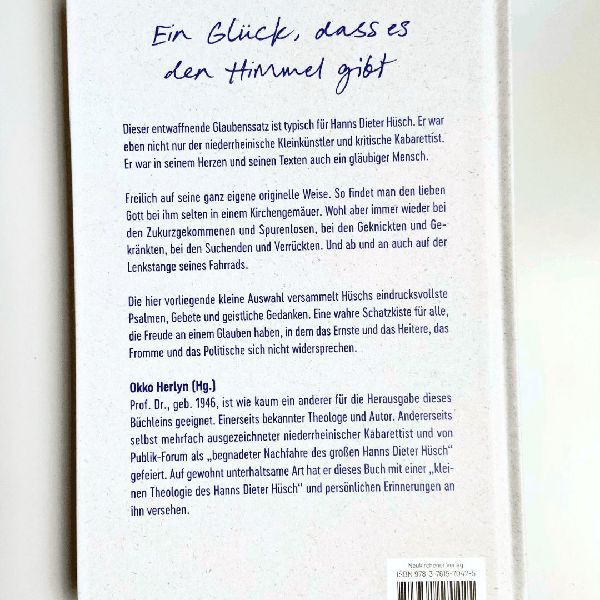 Ein Glück, dass es
den Himmel gibt
Dieser entwaffnende Glaubenssatz ist typisch für Hanns Dieter Hüsch. Er war
eben nicht nur der niederrheinische Kleinkünstler und kritische Kabarettist.
Er war in seinem Herzen und seinen Texten auch ein gläubiger Mensch.
Freilich auf seine ganz eigene originelle Weise. So findet man den lieben
Gott bei ihm selten in einem Kirchengemäuer. Wohl aber immer wieder bei
den Zukurzgekommenen und Spurenlosen, bei den Geknickten und Ge-
kränkten, bei den Suchenden und Verrückten. Und ab und an auch auf der
Lenkstange seines Fahrrads.
Die hier vorliegende kleine Auswahl versammelt Hüschs eindrucksvollste
Psalmen, Gebete und geistliche Gedanken. Eine wahre Schatzkiste für alle,
die Freude an einem Glauben haben, in dem das Ernste und das Heitere, das
Fromme und das Politische sich nicht widersprechen.
Okko Herlyn (Hg.)
Prof. Dr., geb. 1946, ist wie kaum ein anderer für die Herausgabe dieses
Büchleins geeignet. Einerseits bekannter Theologe und Autor. Andererseits
selbst mehrfach ausgezeichneter niederrheinischer Kabarettist und von
Publik-Forum als „begnadeter Nachfahre des großen Hanns Dieter Hüsch"
gefeiert. Auf gewohnt unterhaltsame Art hat er dieses Buch mit einer „klei-
nen Theologie des Hanns Dieter Hüsch" und persönlichen Erinnerungen an
ihn versehen.
Neukirchener Verlag
ISBN 978-3-7615-7042-5